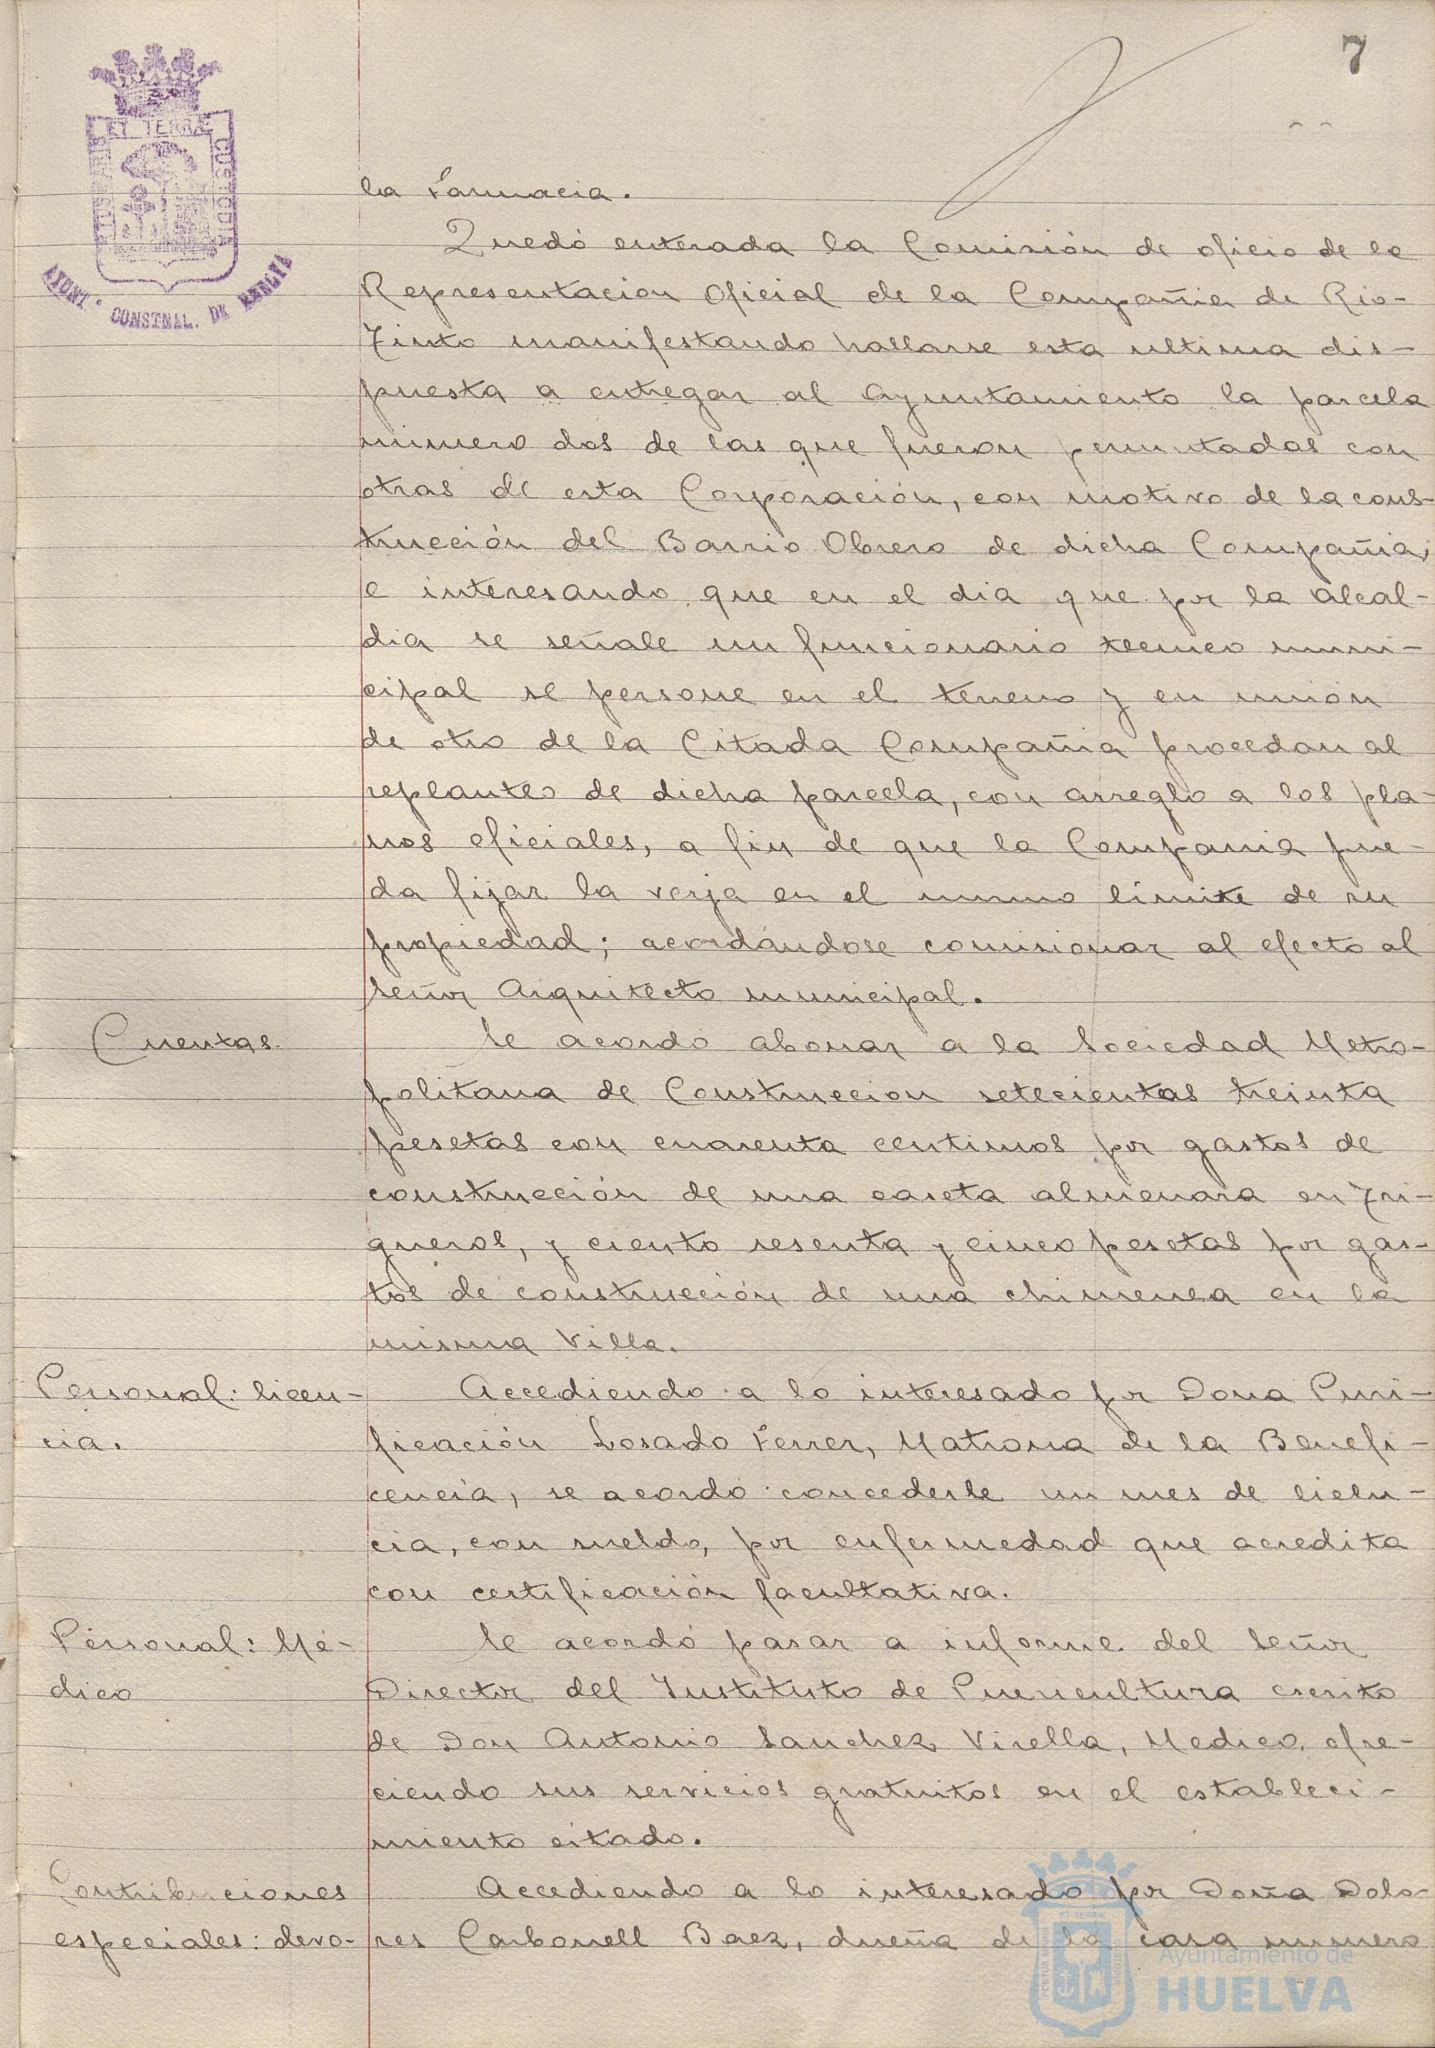 7
PORTUS MARIS ET TERRÆ CUSTODIA
AYUNT. CONSTNAL. DE HUELVA
la Farmacia.
Quedó enterada la Comisión de oficio de la
Representacion Oficial de la Compañia de Rio-
Tinto manifestando hallarse esta ultima dis-
puesta a entregar al Ayuntamiento la parcela
numero dos de las que fueron permutadas con
otras de esta Corporación, con motivo de la cons-
trucción del Barrio Obrero de dicha Compañia,
e interesando que en el dia que por la Alcal-
dia se señale un funcionario tecnico muni-
cipal se persone en el terreno y en unión
de otro de la Citada Compañia procedan al
replanteo de dicha parcela, con arreglo a los pla-
nos oficiales, a fin de que la Compania pue-
da fijar la verja en el mismo limite de su
propiedad; acordándose comisionar al efecto al
Señor Arquitecto municipal.
Cuentas.
Se acordó abonar a la Sociedad Metro-
politana de Construccion setecientas treinta
pesetas con cuarenta centimos por gastos de
construcción de una caseta almenara en Tri-
gueros, y ciento sesenta y cinco pesetas por gas-
tos de construcción de una chimenea en la
misma Villa.
Personal: licen-
cia.
Accediendo a lo interesado por Dona Puri-
ficación Losado Ferrer, Matrona de la Benefi-
cencia, se acordó concederle un mes de licen-
cia, con sueldo, por enfermedad que acredita
con certificación facultativa.
Personal: Mé-
dico
Se acordó pasar a informe del Señor
Director del Instituto de Puericultura escrito
de Don Antonio Sanchez Virella, Medico, ofre-
ciendo sus servicios gratuitos en el estableci-
miento citado.
Contribuciones
especiales: devo-
Accediendo a lo interesado por Doña Dolo-
res Carbonell Baez, dueña de la casa numero
Ayuntamiento de
HUELVA